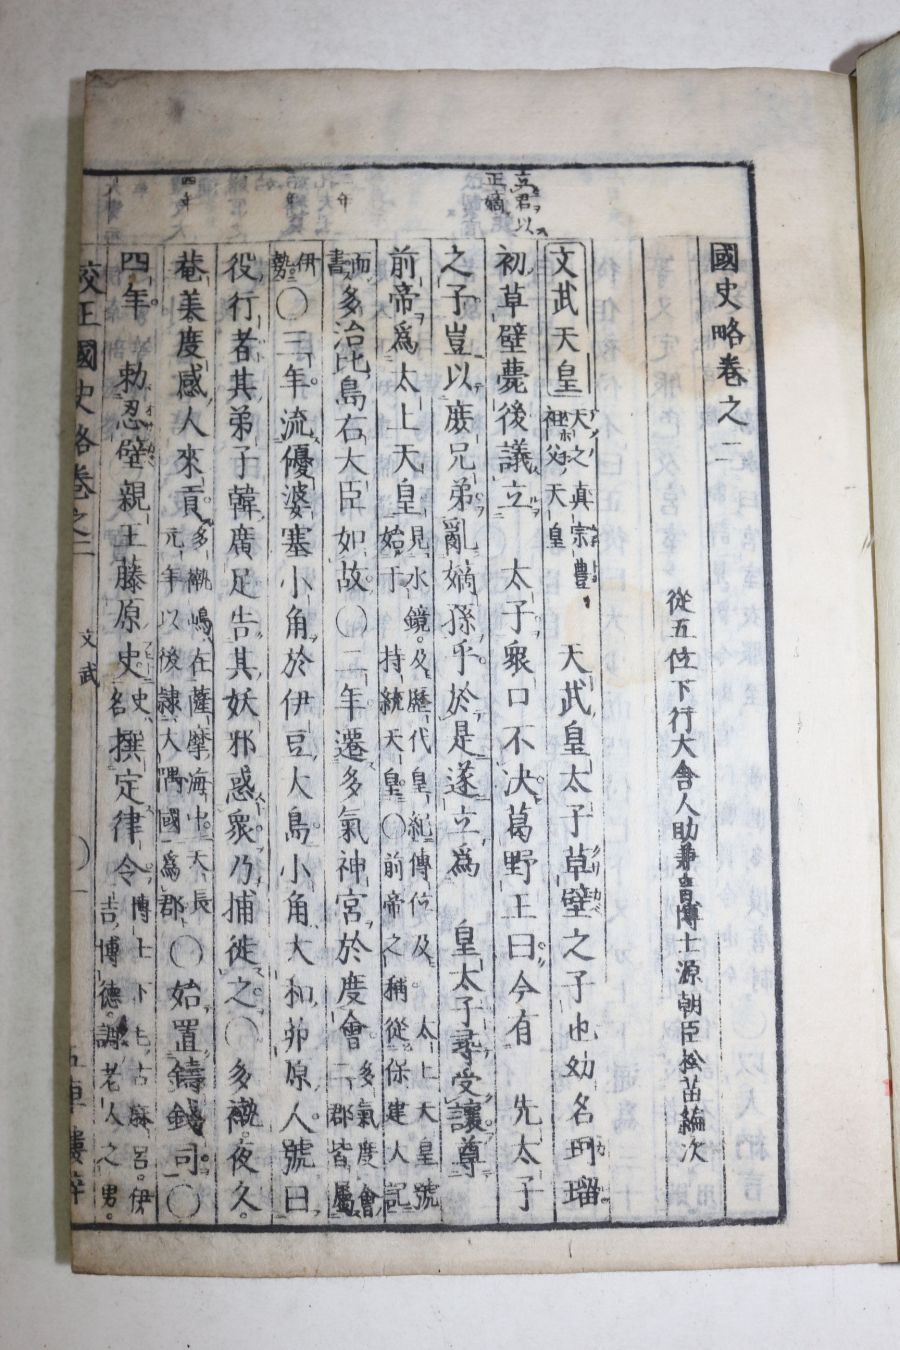 國史略卷之二
從五位下行大舍人助兼音博士源朝臣松苗編次
立君以
正嫡
文武天皇 天之真宗豐 祖父天皇 天武皇太子草壁之子也幼名珂瑠
初草壁薨後議立 太子衆口不决葛野王曰今有 先太子
之子豈以庶兄弟亂嫡孫乎於是遂立爲 皇太子尋受讓尊
前帝爲太上天皇 見水鏡及歷代皇紀傳位及 太上天皇號
始于 持統天皇〇前帝之稱從保建大記
而書
多治比島右大臣如故〇二年遷多氣神宮於度會 多氣度會
二郡皆屬
伊勢
〇三年流優婆塞小角於伊豆大島小角大和茆原人號曰
役行者其弟子韓廣足告其妖邪惑衆乃捕徙之〇多褹夜久
菴美度感人來貢 多褹嶋在薩摩海中天長
元年以後隷大隅國爲郡
〇始置鑄錢司〇
四年勅忍壁親王藤原史 撰定律令 博士 古麻呂伊
吉博德調老人之男
校正國史略卷之二 文武 〇一
二年
三年
四年